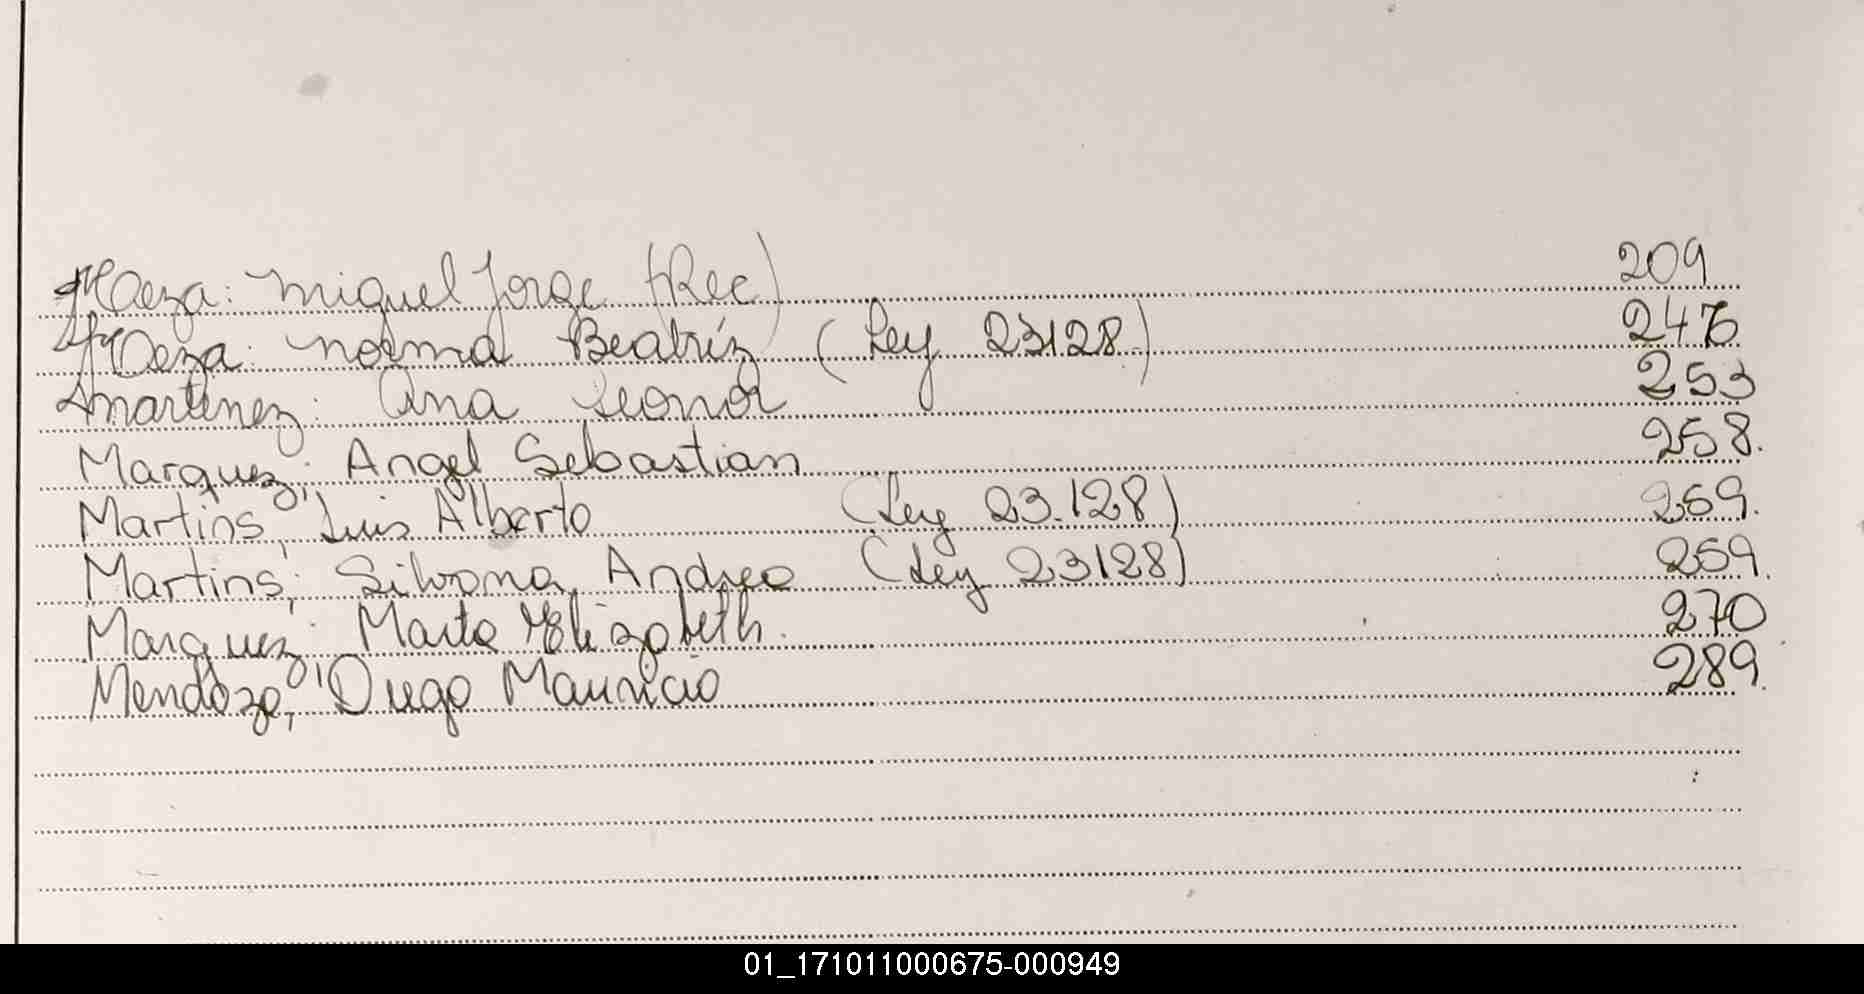 Maeza: Miguel Jorge (Rec) 209
Maeza: Norma Beatríz (Ley 23128) 246
Martinez: Ana Leonor 253
Marquez; Angel Sebastian 258.
Martins; Luis Alberto (Ley 23.128) 259.
Martins; Silvana Andrea (Ley 23128) 259.
Marquez; Marta Elizabeth. 270
Mendoza; Diego Mauricio 289.
01_171011000675-000949